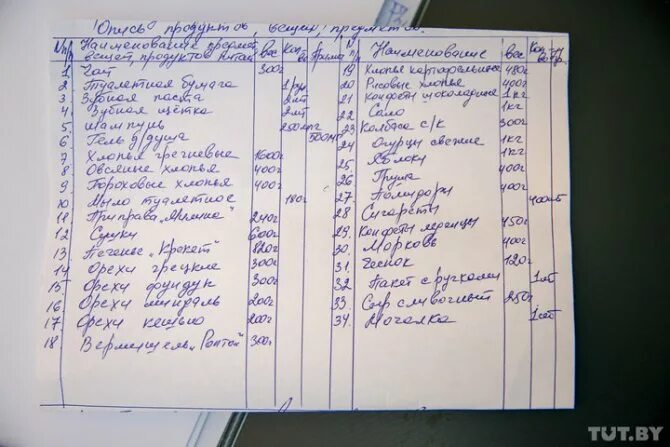 Опись продуктов, вещей, предметов.
N п/п Наименование предмет. вещей, продуктов питан вес Кол-во Прим.
1 Чай 300г
2 Туалетная бумага 1рул
3 Зубная паста 2шт
4 Зубная щётка 2шт
5 Шампунь 250мг
6 Гель д/душа 500мг
7 Хлопья гречневые 1600г
8 Овсяные хлопья 400г
9 Гороховые хлопья 400г
10 Мыло туалетное 180г
11 Приправа 240г
12 Сушки 600г
13 Печенье „Крекет" 820г
14 Орехи грецкие 300г
15 Орехи фундук 300г
16 Орехи миндаль 200г
17 Орехи кешью 200г
18 Вермишель „Роллтон" 300г
N п Наименование вес Кол-во пр.
19 Хлопья картофельные 480г
20 Рисовые хлопья 400г
21 Конфеты шоколадные 1кг
22 Сало 1кг
23 Колбаса с/к 300г
24 Огурцы свежие 1кг
25 Яблоки 1кг
26 Груша 400г
27 Помидоры 400г
28 Сигареты 400шт
29. Конфеты леденцы 450г
30. Морковь 400г
31. Чеснок 120г
32 Пакет с ручками 1шт
33 Сыр сливочный 250г
34. Мочалка 1шт
TUT.BY